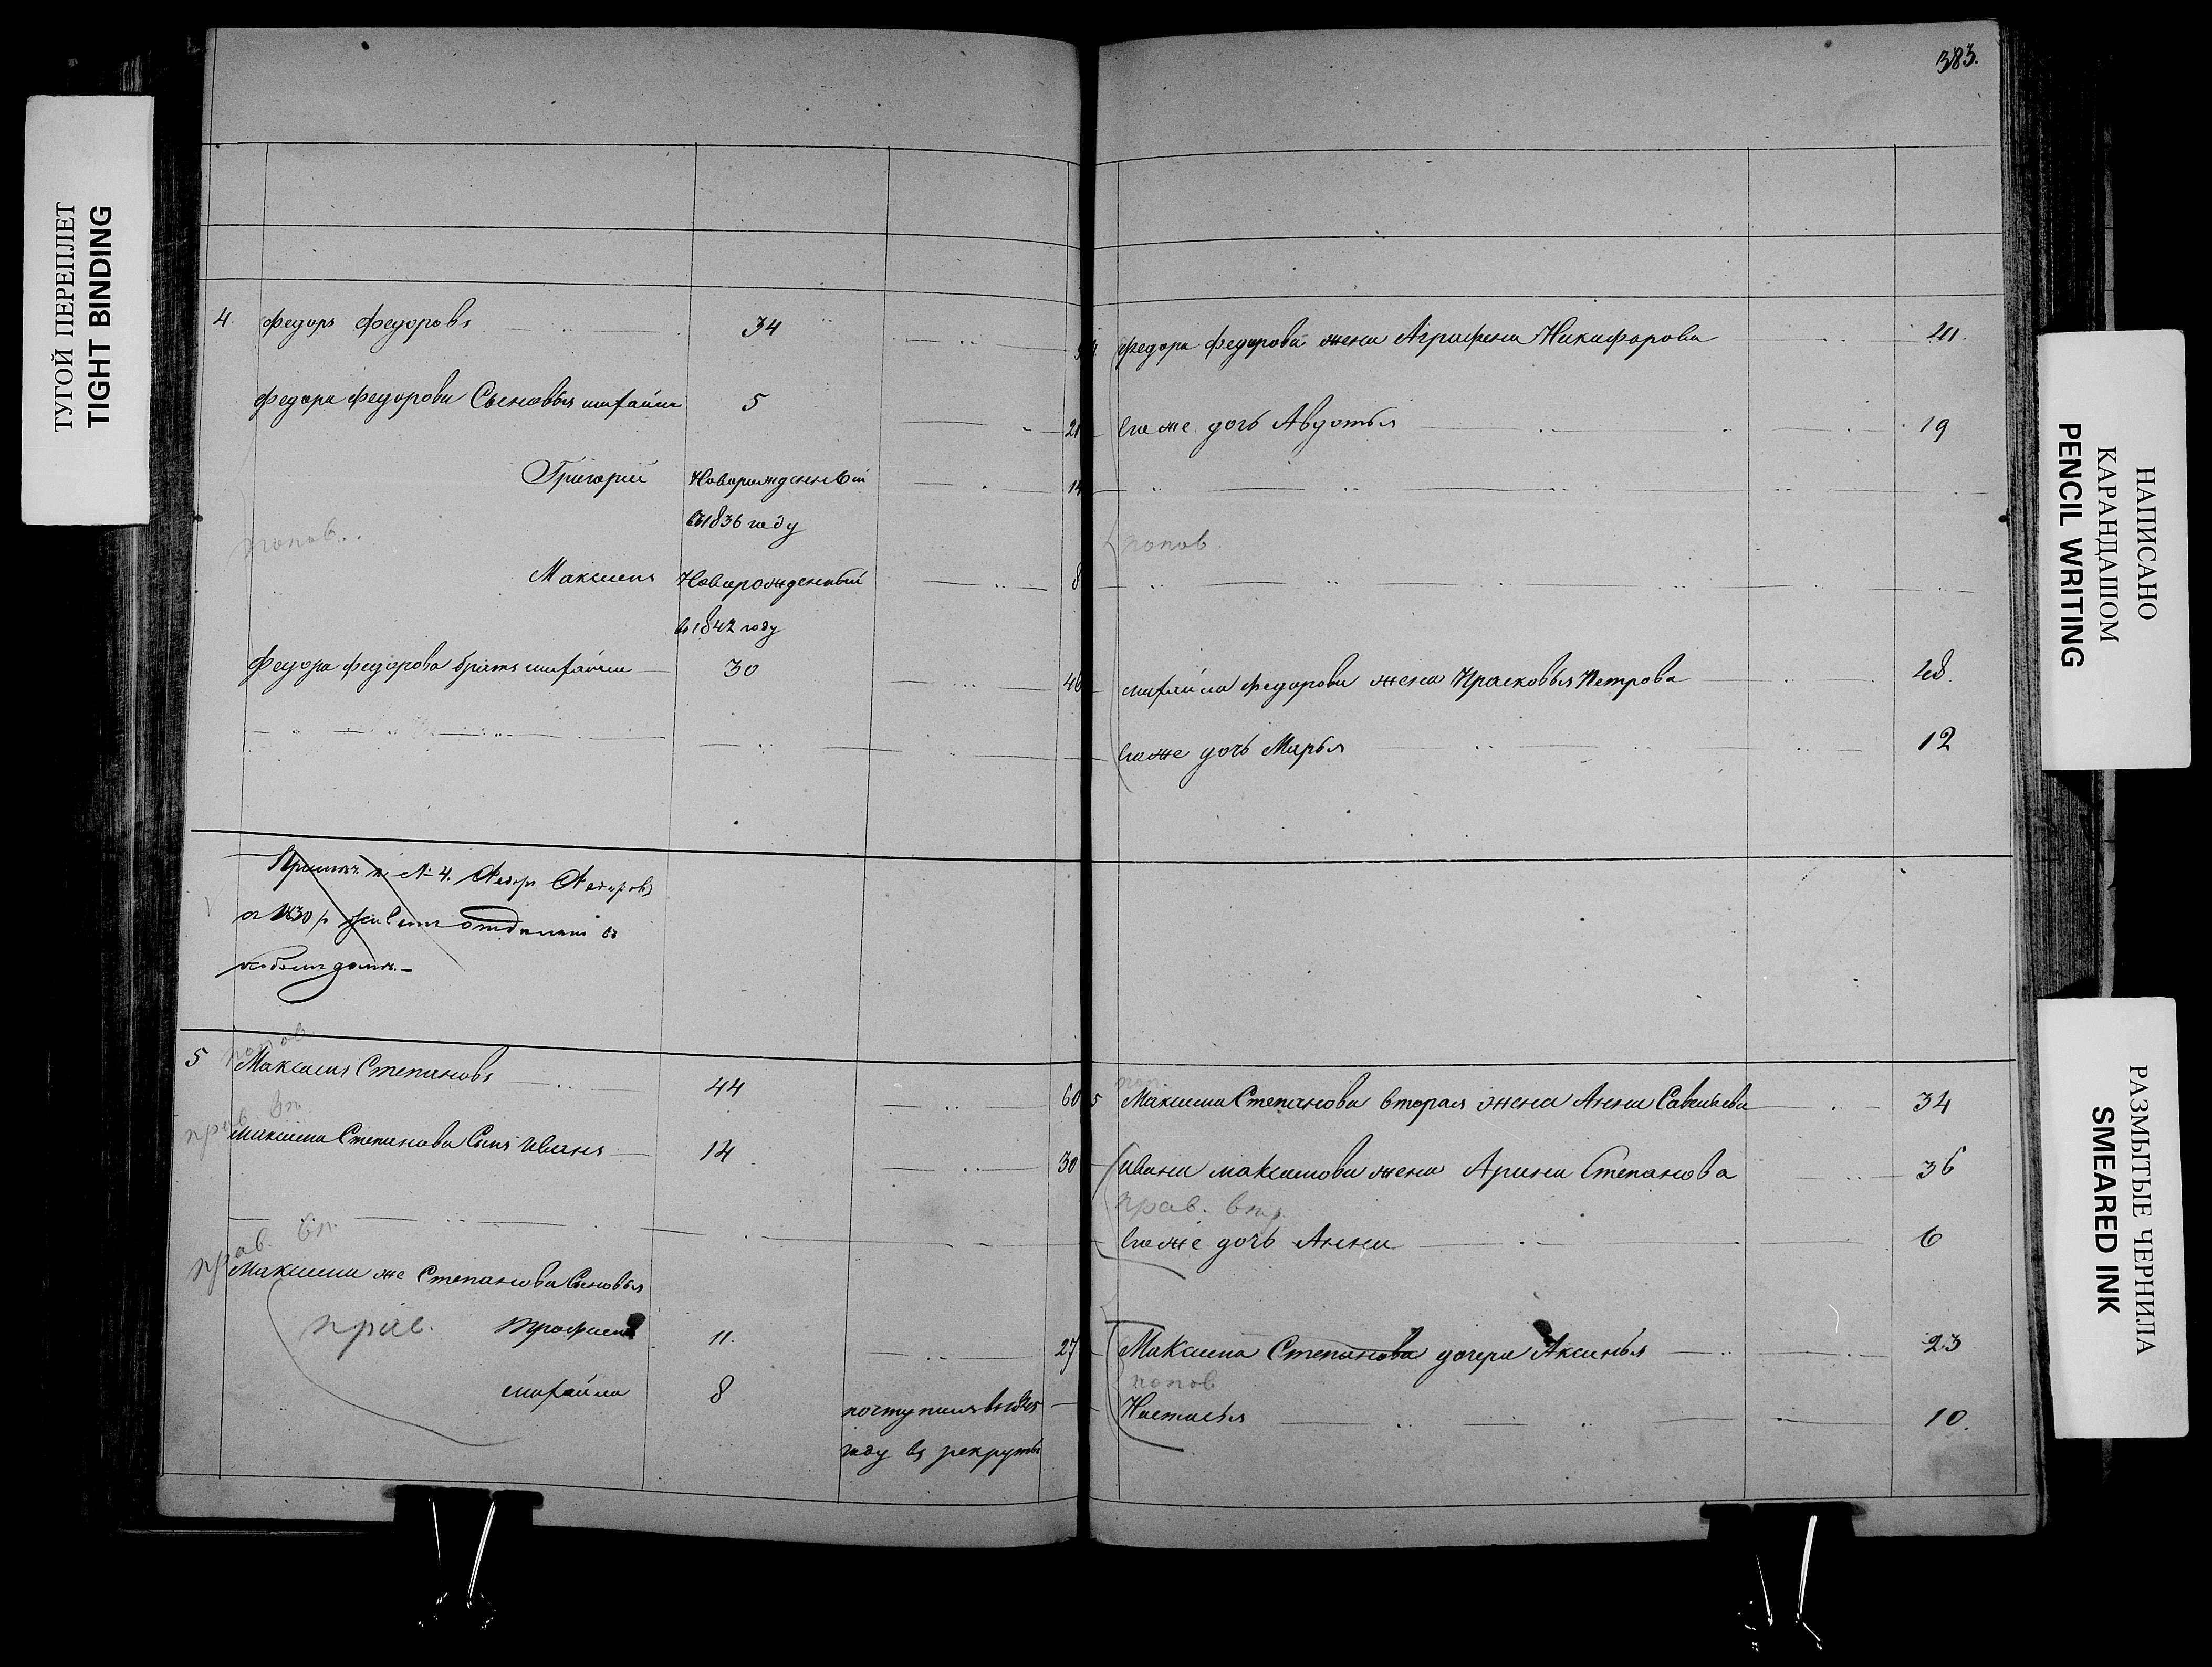 383.
ТУГОЙ ПЕРЕПЛЕТ
TIGHT BINDING
4. Федоръ Федоровъ 34
Федора Федорова Сыновья михайла 5 21
Григорий Новорожденный 14
въ 1836 году
попов..
Максимъ Новорожденный 8
въ 1842 году
Федора Федорова братъ михайла 30 46
№ 4. Федоръ Федоровъ
съ 1830 г живетъ отдельно въ
особомъ домѣ.
попов
5 Максимъ Степановъ 44 60
прав. вп.
Максима Степанова Сынъ Иванъ 14 30
прав. вп.
Максима же Степанова Сыновья
прав. трофимъ 11. 27
михайла 8 поступилъ
году въ рекруты
Федора Федорова жена Аграфена Никифорова 41.
Его же дочь Авдотья 19
попов
михайла Федорова жена Прасковья Петрова 48.
Его же дочь Марья 12
поп.
5 Максима Степанова вторая жена Анна Савельева 34
Ивана максимова жена Арина Степанова 36
прав. вп.
Его же дочь Анна 6
Максима Степанова дочери Аксинья 23
попов
Настасья 10.
НАПИСАНО
КАРАНДАШОМ
PENCIL WRITING
РАЗМЫТЫЕ ЧЕРНИЛА
SMEARED INK